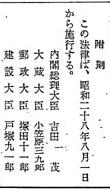 附則
この法律は、昭和二十八年八月一日
から施行する。
内閣総理大臣 吉田茂
大蔵大臣 小笠原三九郎
郵政大臣 塚田十一郎
建設大臣 戸塚九一郎